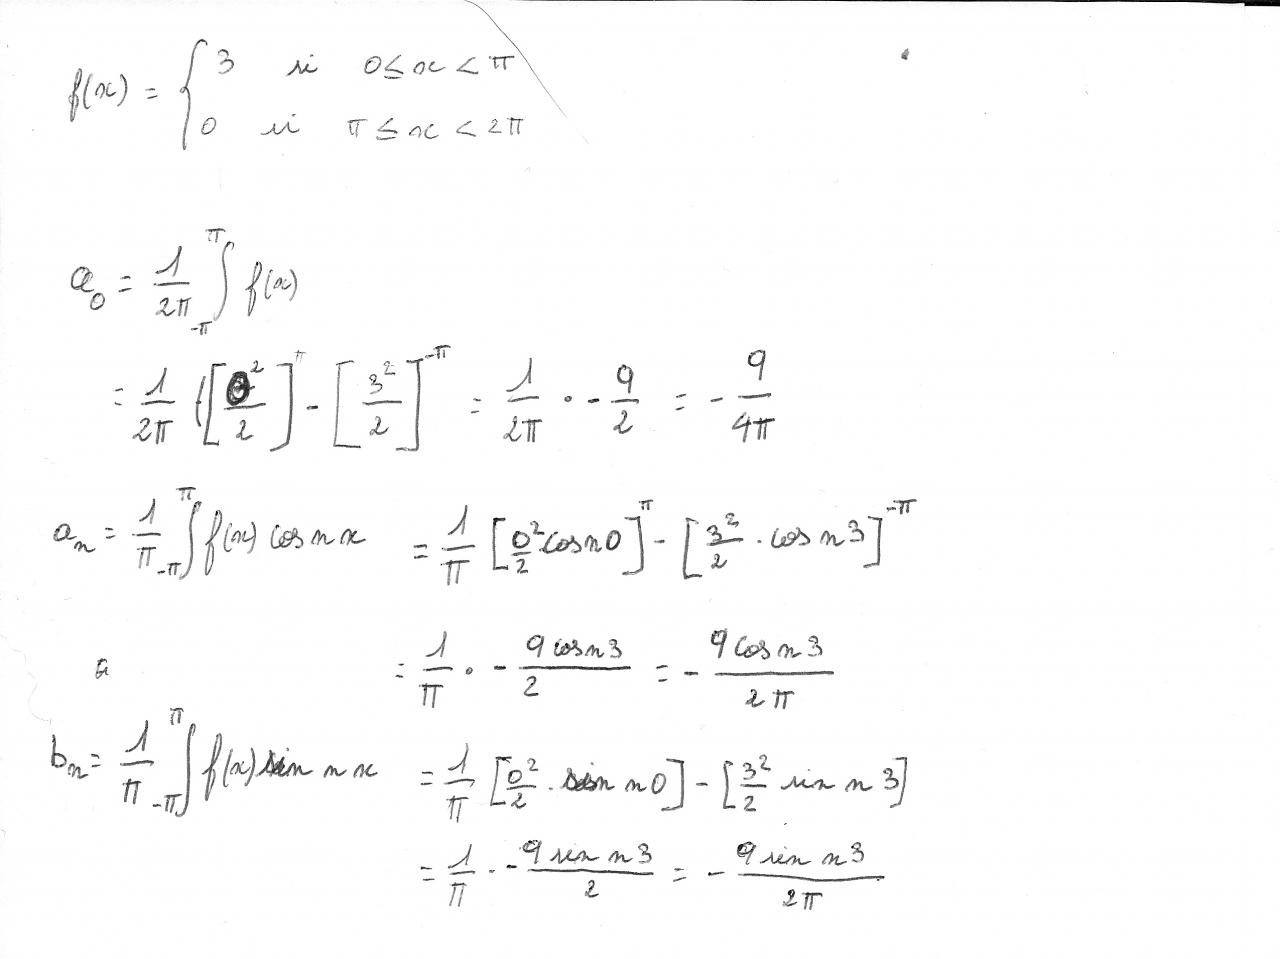 f(x) = { 3 si 0 ≤ x < π
0 si π ≤ x < 2π
a₀ = 1/2π ∫_{-π}^{π} f(x)
= 1/2π ([0²/2]^π - [3²/2]^{-π} = 1/2π · - 9/2 = - 9/4π
aₙ = 1/π ∫_{-π}^{π} f(x) cos n x = 1/π [0²/2 · cos n 0]^π - [3²/2 · cos n 3]^{-π}
a = 1/π · - 9 cos n 3/2 = - 9 cos n 3/2π
bₙ = 1/π ∫_{-π}^{π} f(x) sin n x = 1/π [0²/2 · sin n 0] - [3²/2 sin n 3]
= 1/π · - 9 sin n 3/2 = - 9 sin n 3/2π